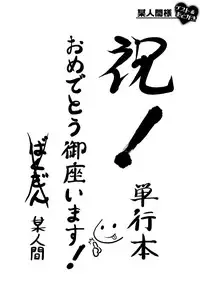 某人間様
祝!
単行本
おめでとう御座います!
某人間